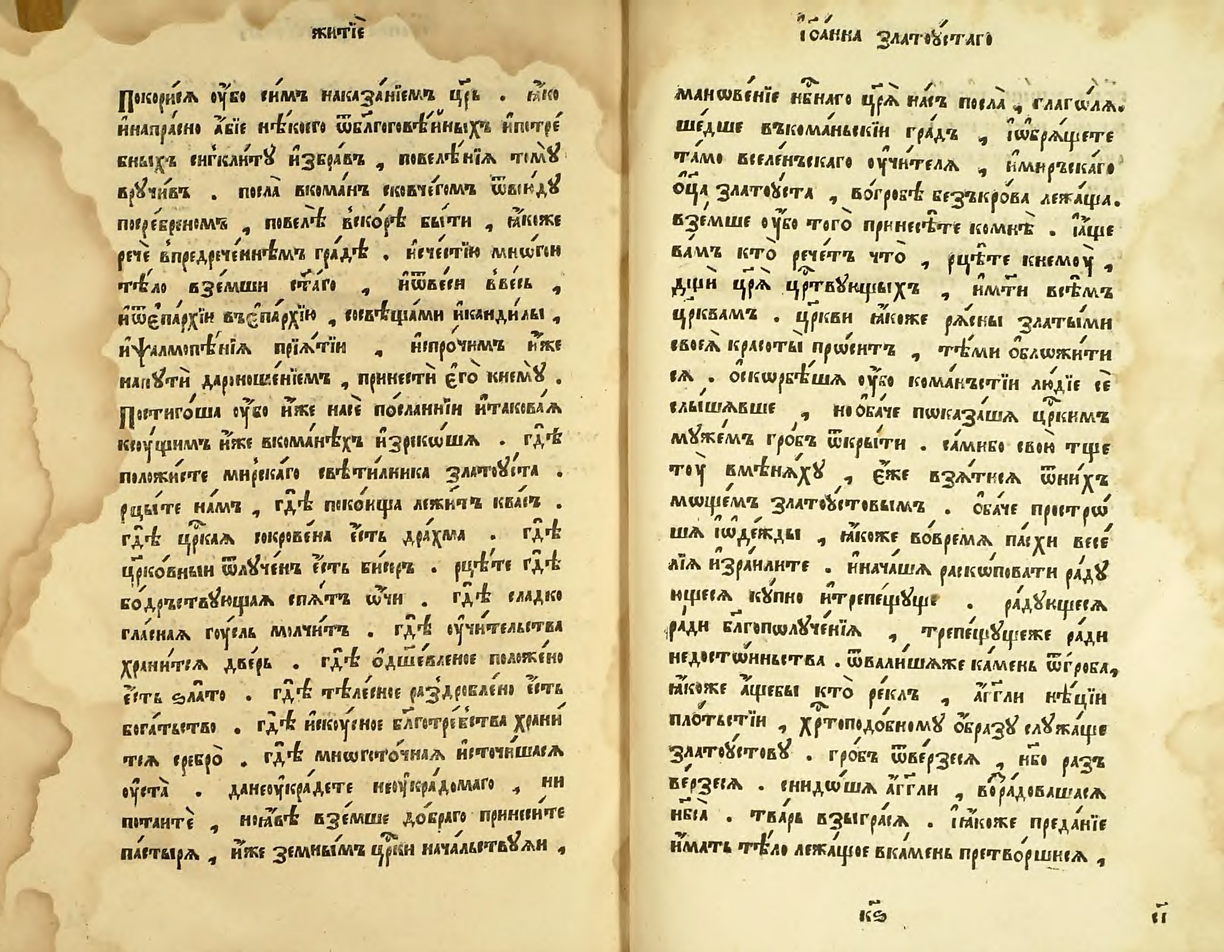 житїѐ
Покори́сѧ ᲂу҆́бо симъ наказа́нїемъ цр҃ь . ꙗ҆́ко
и҆напра́сно а҆́бїе нѣ́коего ѿбл҃гоговѣ́йныхъ и҆потре́
бныхъ сигкли́ту и҆збра́въ , повелѣ́нїѧ тому̀
вручи́въ . посла̀ вкома́нъ сковче́гомъ ѿвню́ду
посре́бреномъ , повелѣ̀ вско́рѣ бы́ти , ꙗ҆́коже
речѐ в҆предрече́ннѣмъ гра́дѣ . и҆сче́стїю мно́гои
тѣ́ло взе́мши ст҃а́го , и҆ѿве́си в҆ве́сь ,
и҆ѿє҆па́рхїи въє҆па́рхїю , сосвѣща́ми и҆канди́лы ,
и҆ѱалмопѣ́нїѧ прїѧ́тїи , и҆про́чимъ и҆́же
напутѝ дароноше́нїемъ , принестѝ є҆го̀ кнему̀ .
Постиго́ша ᲂу҆́бо и҆́же насѐ по́сланнїи и҆такова́ѧ
ксꙋ́щимъ и҆́же вкома́нѣхъ и҆зреко́шѧ . гдѣ̀
положи́сте ми́рскаго свѣти́лника златоу́ста .
рцы́те на́мъ , гдѣ̀ поко́ища лежи́тъ ква́съ .
гдѣ̀ цр҃кая сокрове́на є҆́сть дра́хма . гдѣ̀
црко́вныи ѿлуче́нъ є҆́сть би́серъ . рцѣ́те гдѣ̀
бо́дръствующая спѧ́тъ ѻ҆́чи . гдѣ̀ сла́дко
гла́сная гоу́сль молчи́тъ . гдѣ̀ ᲂу҆чи́тельства
храни́тсѧ две́рь . гдѣ̀ о҆дш҃е́вленое поло́жено
є҆́сть ѕла́то . гдѣ̀ тѣле́сное раздро́блено є҆́сть
бога́тьство . гдѣ̀ и҆скоу́сное бл҃готре́бства храни́
тсѧ сребро̀ . гдѣ̀ мно́гото́чная и҆сточи́шасѧ
ᲂу҆ста̀ . данеоукра́дете неоукра́домаго , ни
потаитѐ , ноꙗ҆́вѣ взе́мше до́браго принеси́те
па́стырѧ , и҆́же земны́мъ цр҃ки нача́льствуѧи ,
і҆ѡа́нна златоу́стаго
манове́нїе нб҃наго цр҃ѧ̀ на́съ посла̀ , глаго́лѧ .
ше́дше въкома́ньскїи гра́дъ , і҆ѡбрѧ́щете
та́мо вселе́нъскаго ᲂу҆чи́телѧ , и҆мирьска́го
о҆ц҃а̀ златоу́ста , во́гробѣ безъкро́ва лежа́ща .
взе́мше ᲂу҆́бо того̀ принесѣ́те комнѣ̀ . і҆а҆́ще
ва́мъ кто̀ рече́тъ что̀ , рцѣ́те кнемоу̀ ,
дщ҃и цр҃ѧ̀ цр҃твующыхъ , и҆мт҃и всѣ́мъ
цр҃квамъ . цр҃кви ꙗ҆́коже рѧ́сны златы́ми
своеѧ̀ красоты̀ про́ситъ , тѣ́ми о҆блѡжи́ти
сѧ . о҆скорбѣ́шѧ ᲂу҆́бо кома́нъстїи лю́дїе сѐ
слы́шавше , нообаче пѡказа́шѧ цр҃кимъ
муже́мъ гро́бъ ѿкры́ти . са́мибо свою̀ тще
тоу̀ вмѣнѧ́ху , є҆́же взѧ́тисѧ ѿни́хъ
мѡще́мъ златоу́стовымъ . о҆ба́че простро́
шѧ і҆ѻ҆де́жды , ꙗ҆́коже во́времѧ па́схи весе́
лїѧ и҆зраи́лите . и҆нача́шѧ раскопова́ти ра́ду
ющеся ку́пно и҆трепе́щуще . ра́дующесѧ
ра́ди бл҃гополуче́нїѧ , трепе́щущеже ра́ди
недосто́иньства . ѿвали́шѧже ка́мень ѿгро́ба ,
ꙗ҆́коже а҆́щебы кто̀ ре́клъ , а҆́гг҃ли нѣ́цїи
пло́тьстїи , хр҃топодо́бному о҆́бразу служа́ще
златоу́стову . гро́бъ ѿве́рзесѧ , нб҃о разъ
ве́рзесѧ . снидо́шѧ а҆́гг҃ли , во́зра́довашасѧ
нб҃са̀ . тва́рь взыгра́сѧ . і҆ꙗ҆́коже преда́нїе
и҆́мать тѣ́ло лежа́щое вка́мень претво́ршисѧ ,
кѕ҃
єі҃